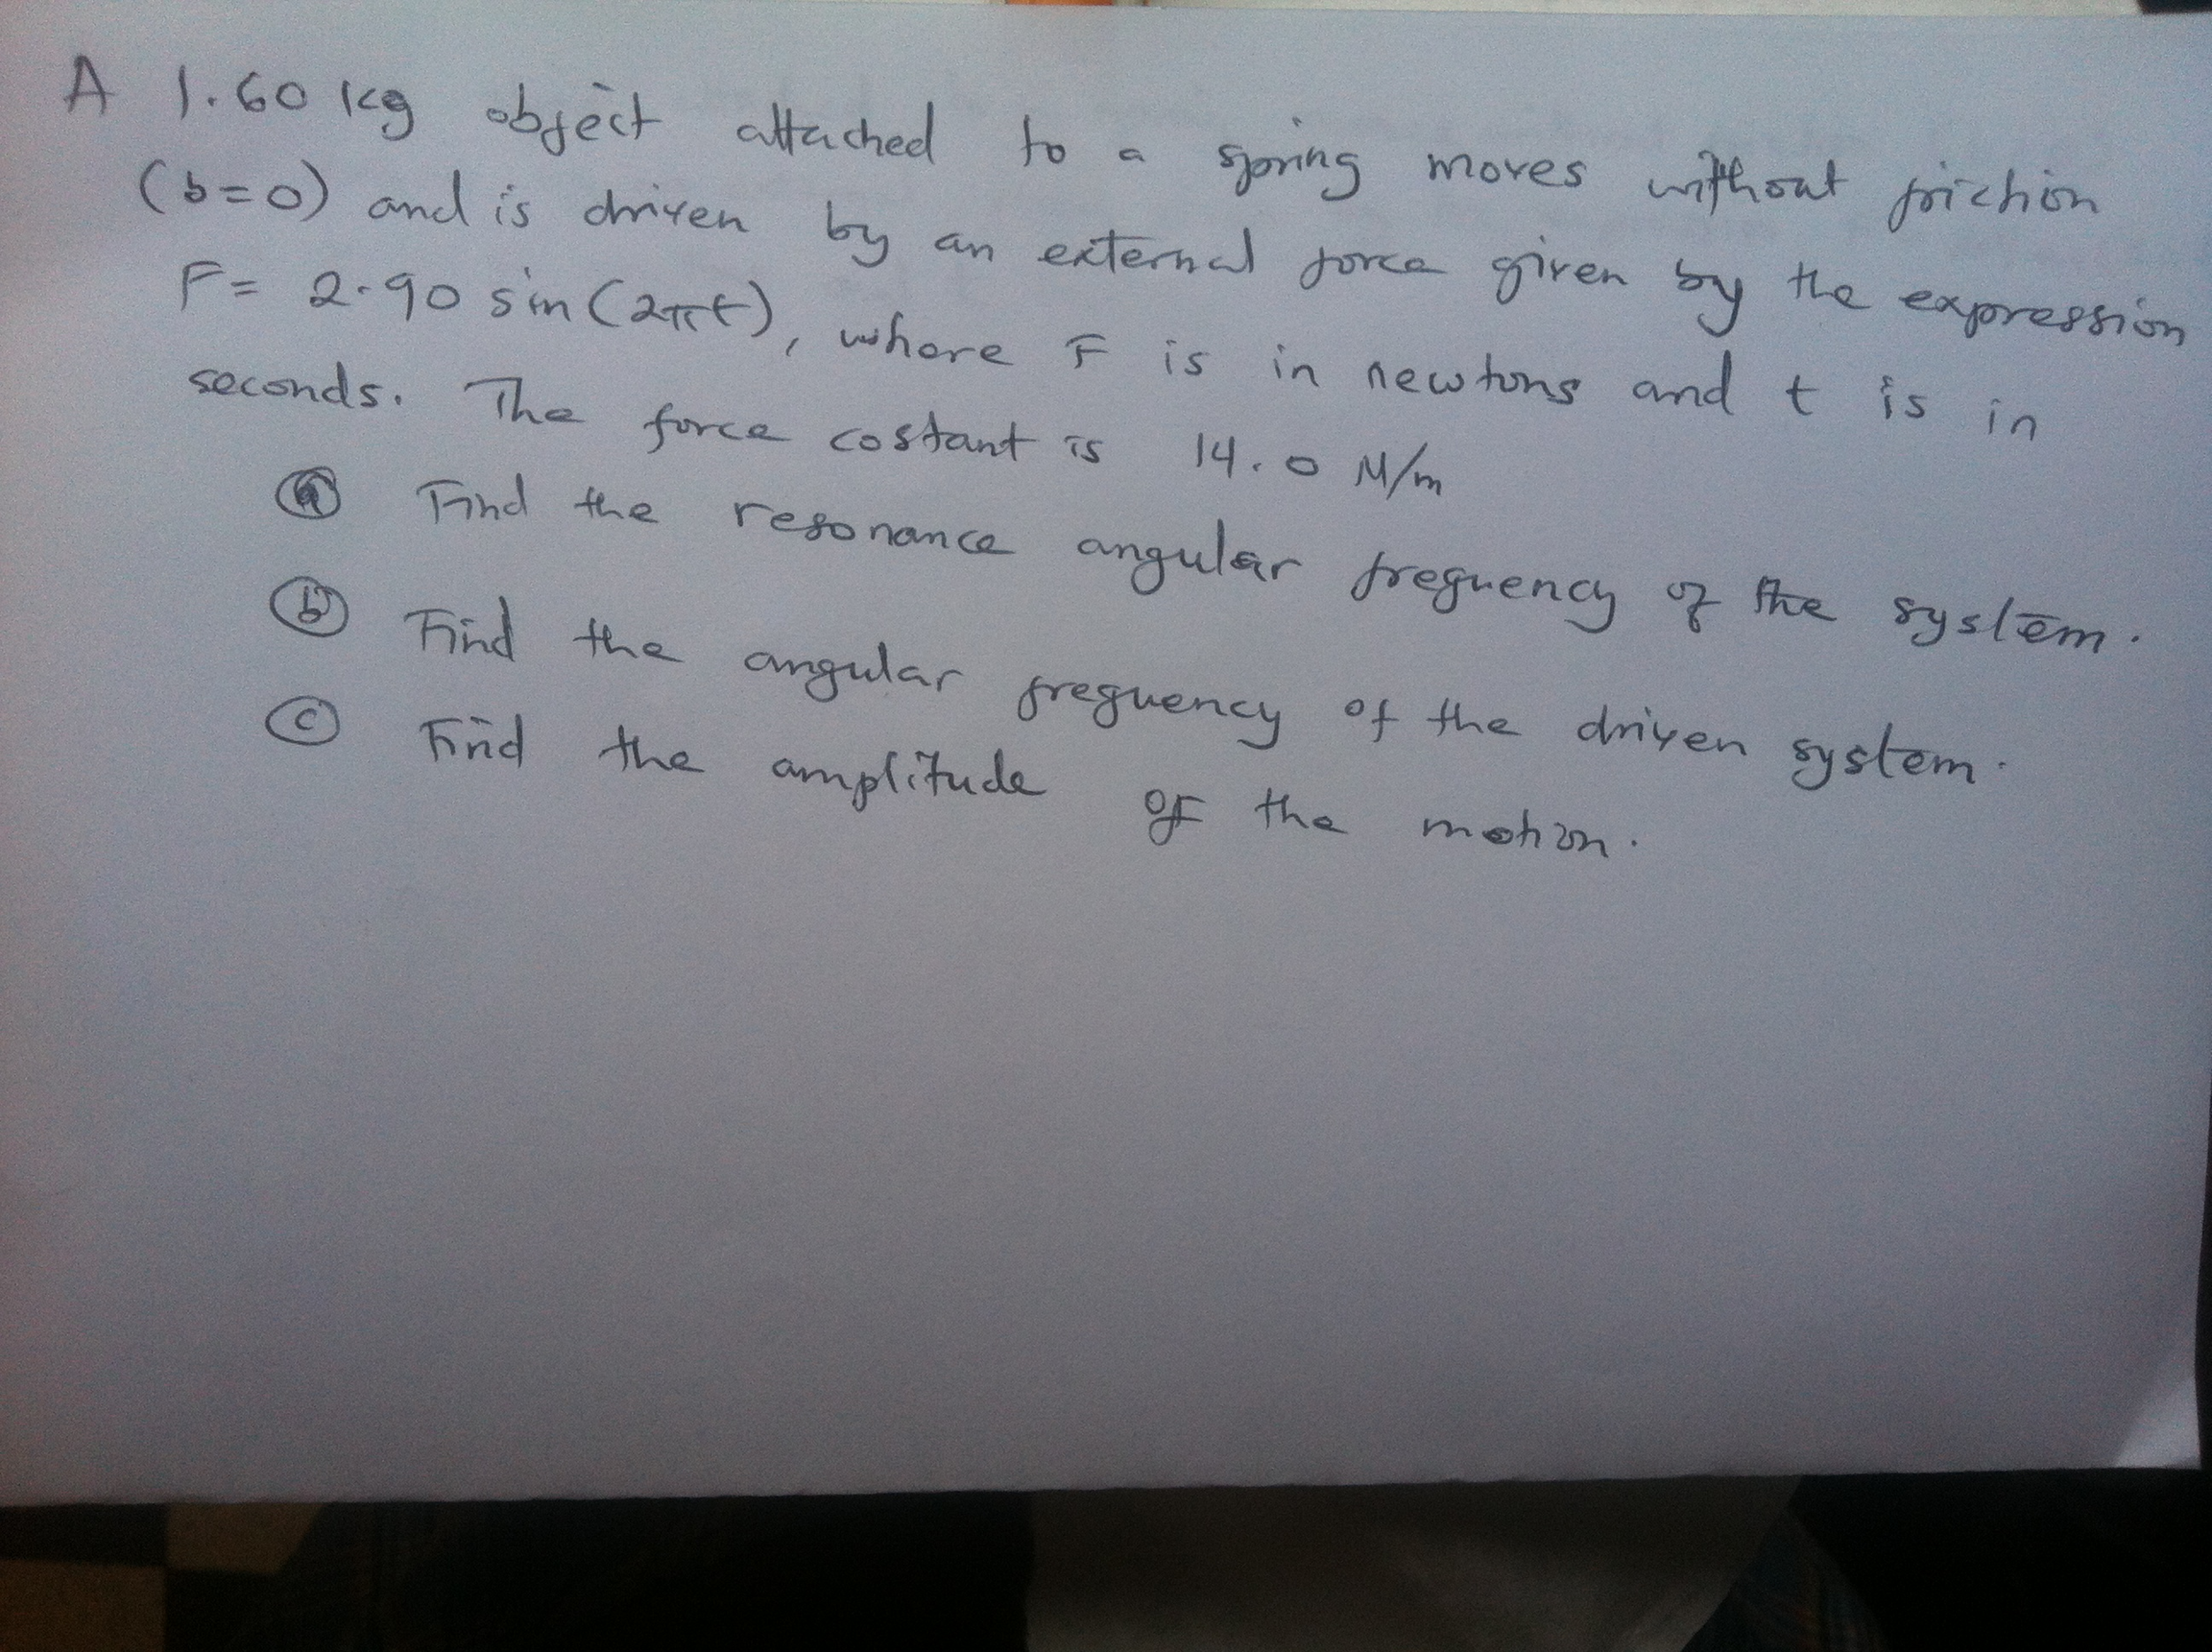 A 1.60 kg object attached to a spring moves without friction
(b=0) and is driven by an external force given by the expression
F= 2.90 sin(2πt), where F is in newtons and t is in
seconds. The force costant is 14.0 N/m
ⓐ Find the resonance angular frequency of the system.
ⓑ Find the angular frequency of the driven system.
ⓒ Find the amplitude of the motion.